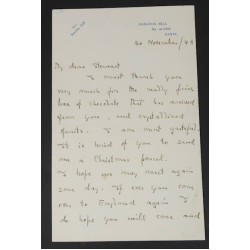 20 November/48
My dear Stewart
I must thank you
very much for the really fine
box of chocolate that has arrived
from you, and crystallised
fruits. I am most grateful.
It is kind of you to send
me a Christmas parcel.
I hope you may meet again
some day. If ever you come
over to England again I
do hope you will come and